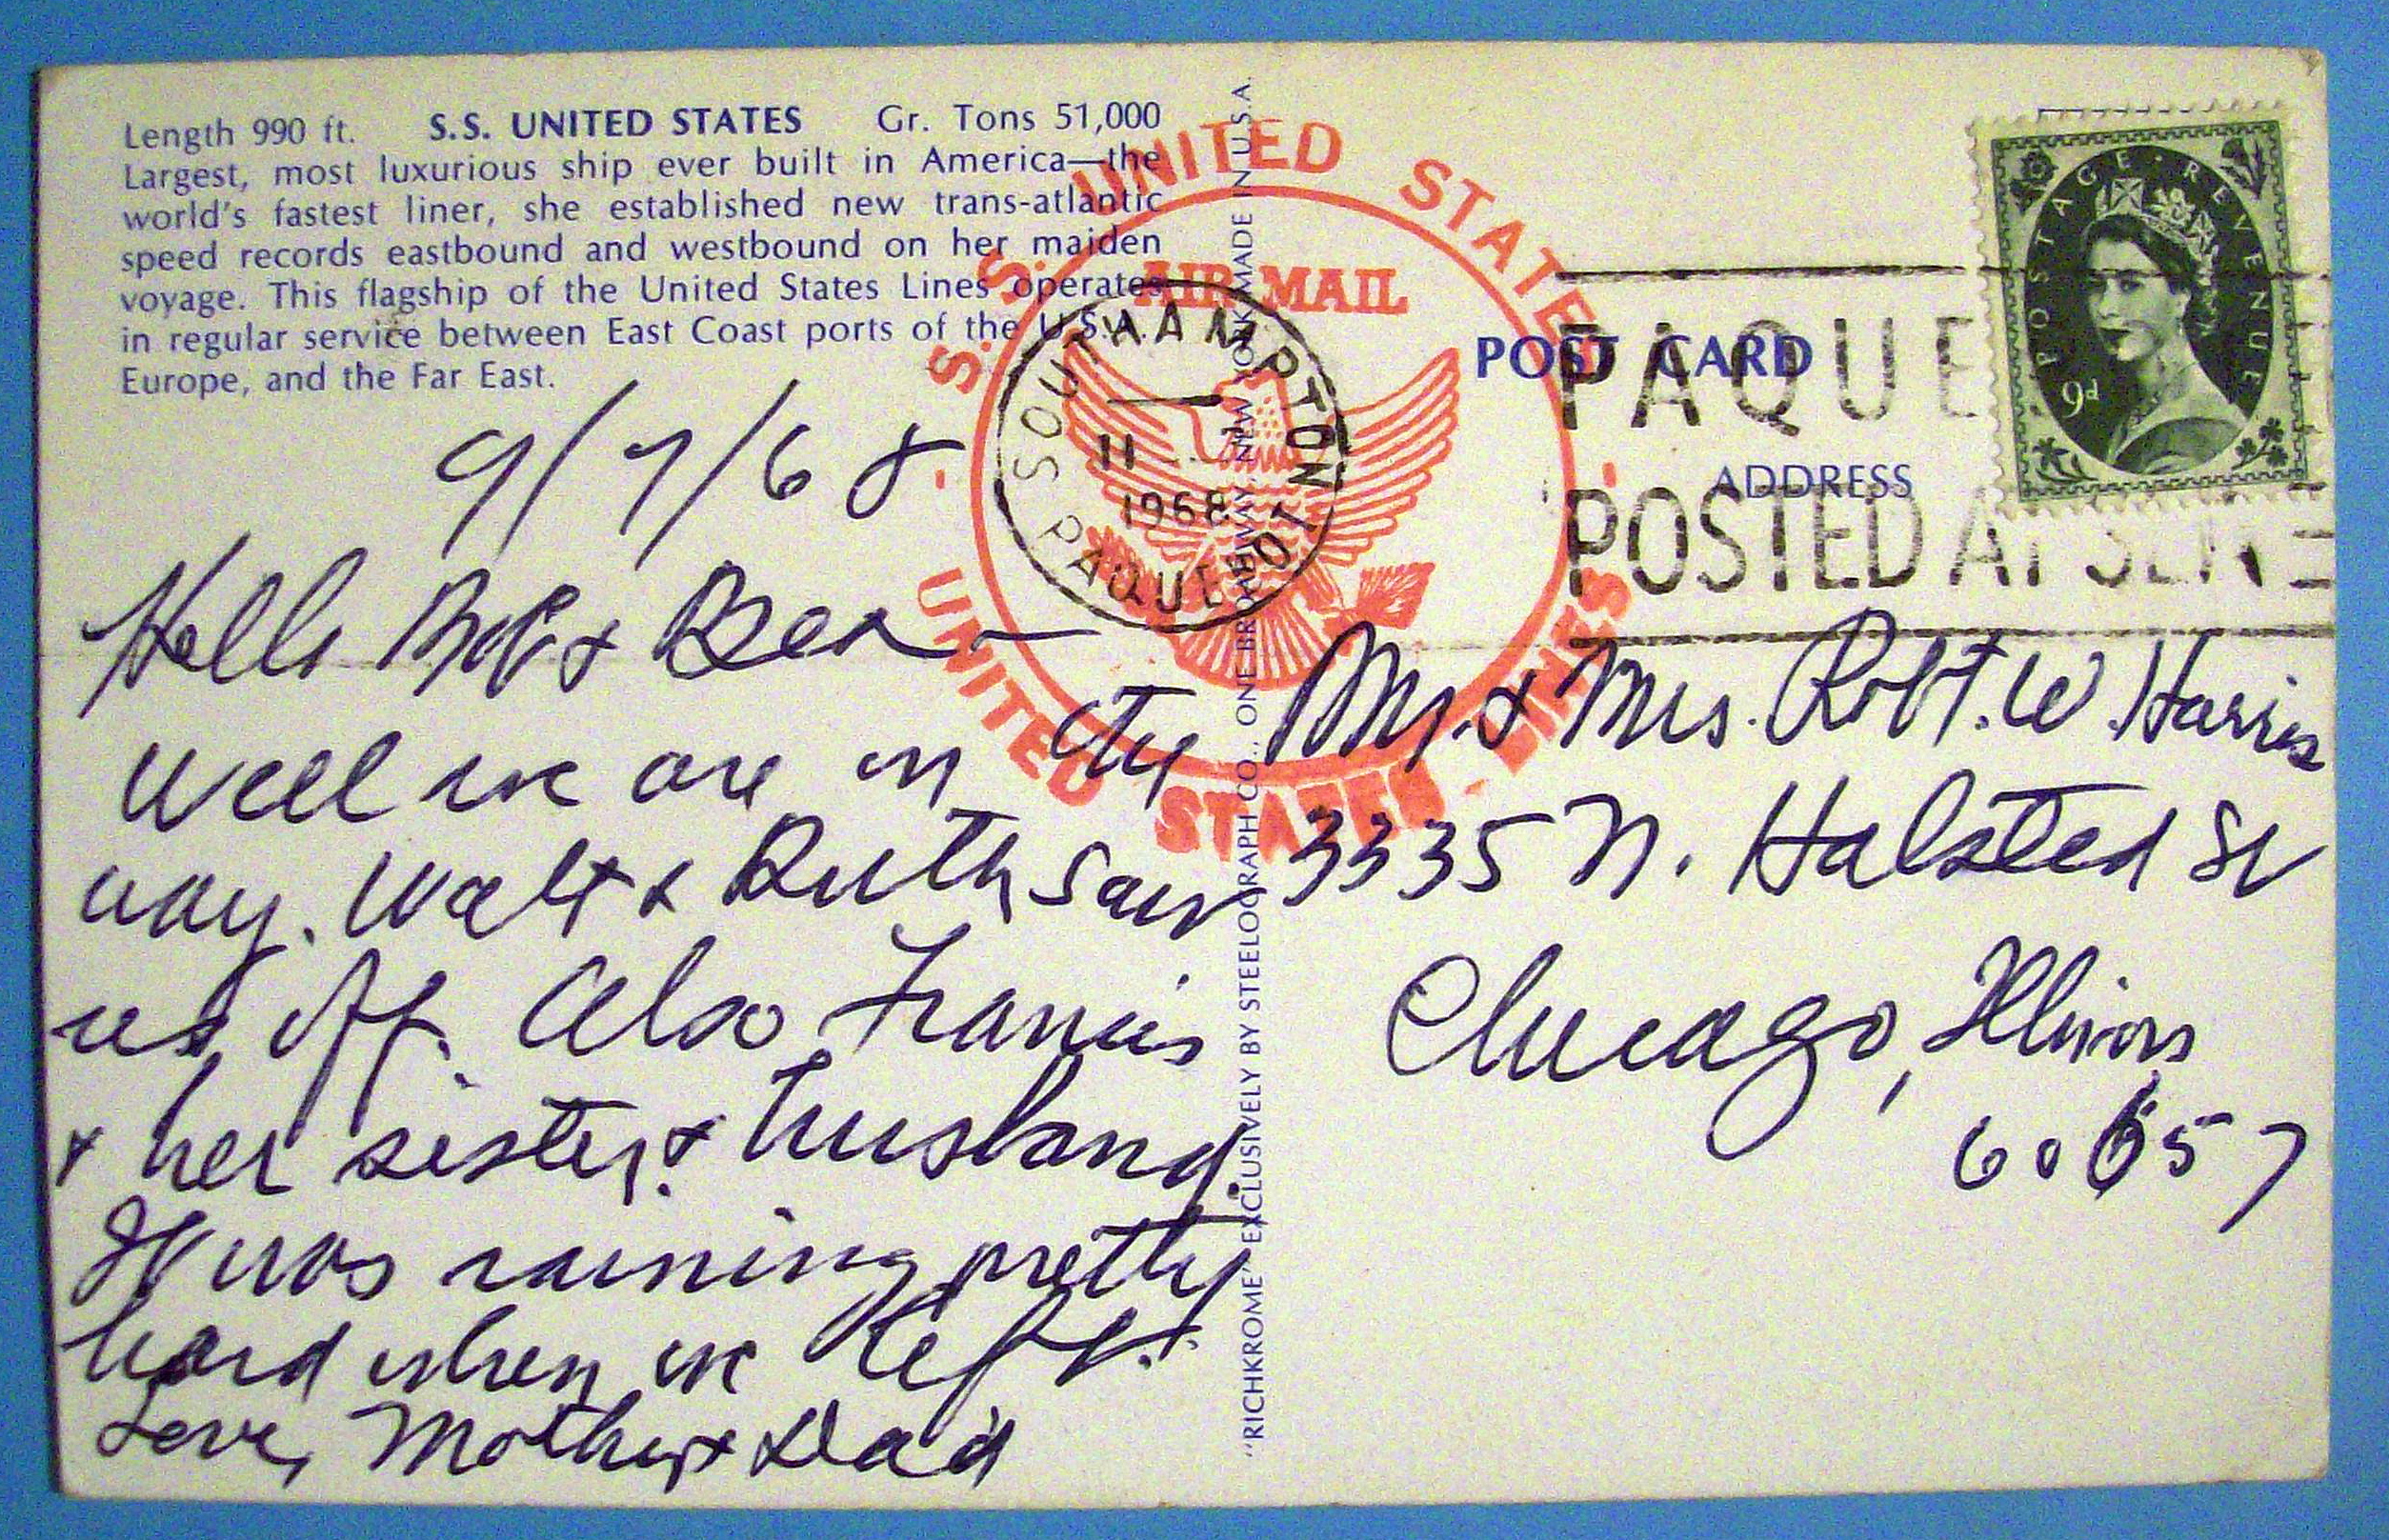 Length 990 ft. S.S. UNITED STATES Gr. Tons 51,000
Largest, most luxurious ship ever built in America—the
world's fastest liner, she established new trans-atlantic
speed records eastbound and westbound on her maiden
voyage. This flagship of the United States Lines operates
in regular service between East Coast ports of the U.S.A.,
Europe, and the Far East.
9/7/68
Hello Bob & Bea —
Well we are on the
way. Walt & Ruth saw
us off. Also Francis
& her sister & husband.
It was raining pretty
hard when we left.
Love, Mother & Dad
"RICHKROME" EXCLUSIVELY BY STEELOGRAPH CO., ONE BROADWAY, NEW YORK MADE IN U.S.A.
S.S. UNITED STATES
AIR MAIL
UNITED STATES LINES
STATES
SOUTHAMPTON
11
1968
PAQUEBOT
POST CARD
ADDRESS
PAQUE
POSTED AT SE
POSTAGE · REVENUE
9d
Mr. & Mrs. Robt. W. Harris
3335 N. Halsted St
Chicago, Illinois
60657